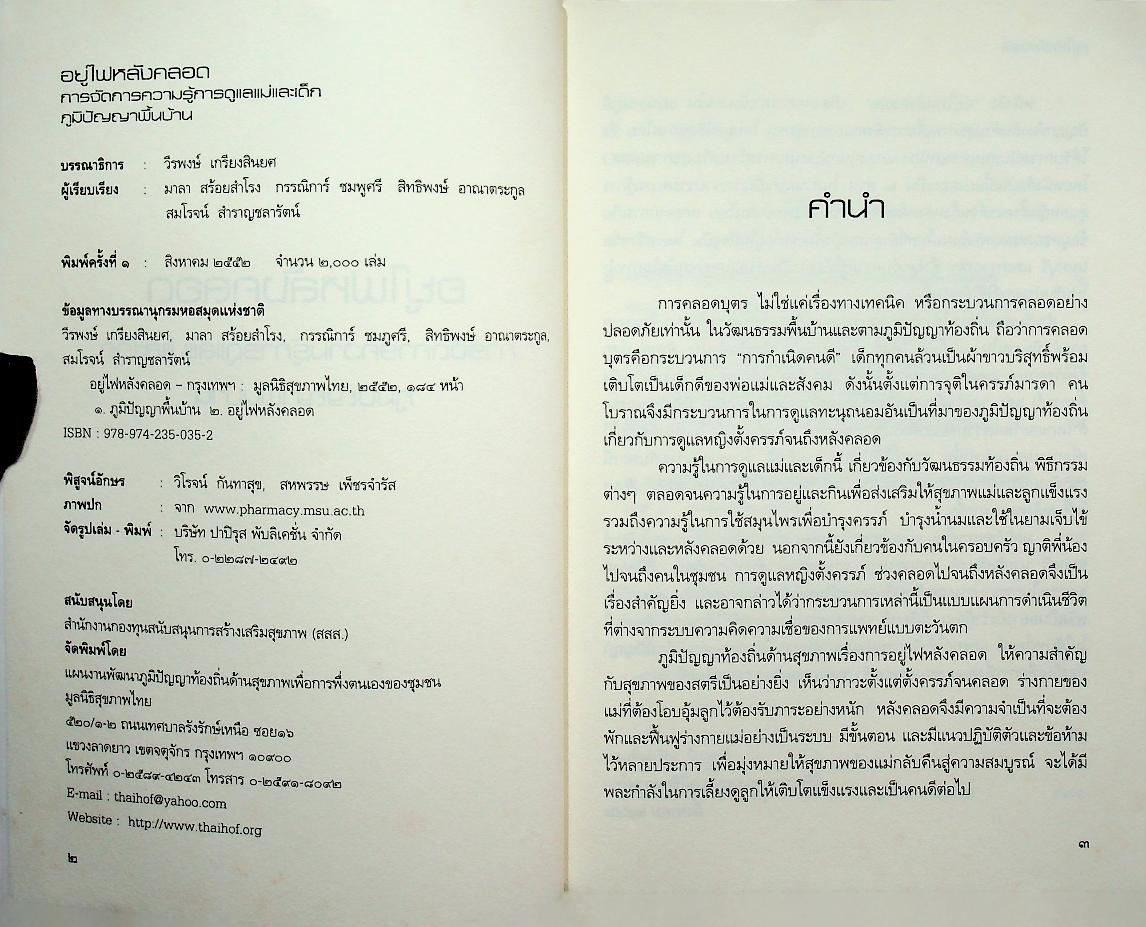 อยู่ไฟหลังคลอด
การจัดการความรู้การดูแลแม่และเด็ก
ภูมิปัญญาพื้นบ้าน
บรรณาธิการ : วีรพงษ์ เกรียงสินยศ
ผู้เรียบเรียง : มาลา สร้อยสำโรง กรรณิการ์ ชมพูศรี สิทธิพงษ์ อาณาตระกูล
สมโรจน์ สำราญชลารัตน์
พิมพ์ครั้งที่ ๑ : สิงหาคม ๒๕๕๒ จำนวน ๒,๐๐๐ เล่ม
ข้อมูลทางบรรณานุกรมหอสมุดแห่งชาติ
วีรพงษ์ เกรียงสินยศ, มาลา สร้อยสำโรง, กรรณิการ์ ชมภูศรี, สิทธิพงษ์ อาณาตระกูล,
สมโรจน์ สำราญชลารัตน์
อยู่ไฟหลังคลอด – กรุงเทพฯ : มูลนิธิสุขภาพไทย, ๒๕๕๒, ๑๘๔ หน้า
๑. ภูมิปัญญาพื้นบ้าน ๒. อยู่ไฟหลังคลอด
ISBN : 978-974-235-035-2
พิสูจน์อักษร : วิโรจน์ กันทาสุข, สหพรรษ เพ็ชรจำรัส
ภาพปก : จาก www.pharmacy.msu.ac.th
จัดรูปเล่ม - พิมพ์ : บริษัท ปาปิรุส พับลิเคชั่น จำกัด
โทร. ๐-๒๒๘๗-๒๔๙๒
สนับสนุนโดย
สำนักงานกองทุนสนับสนุนการสร้างเสริมสุขภาพ (สสส.)
จัดพิมพ์โดย
แผนงานพัฒนาภูมิปัญญาท้องถิ่นด้านสุขภาพเพื่อการพึ่งตนเองของชุมชน
มูลนิธิสุขภาพไทย
๕๒๐/๑-๒ ถนนเทศบาลรังรักษ์เหนือ ซอย๑๖
แขวงลาดยาว เขตจตุจักร กรุงเทพฯ ๑๐๙๐๐
โทรศัพท์ ๐-๒๕๘๙-๔๒๔๓ โทรสาร ๐-๒๕๙๑-๘๐๙๒
E-mail : thaihof@yahoo.com
Website : http://www.thaihof.org
๒
คำนำ
การคลอดบุตร ไม่ใช่แค่เรื่องทางเทคนิค หรือกระบวนการคลอดอย่าง
ปลอดภัยเท่านั้น ในวัฒนธรรมพื้นบ้านและตามภูมิปัญญาท้องถิ่น ถือว่าการคลอด
บุตรคือกระบวนการ “การกำเนิดคนดี” เด็กทุกคนล้วนเป็นผ้าขาวบริสุทธิ์พร้อม
เติบโตเป็นเด็กดีของพ่อแม่และสังคม ดังนั้นตั้งแต่การจุติในครรภ์มารดา คน
โบราณจึงมีกระบวนการในการดูแลทะนุถนอมอันเป็นที่มาของภูมิปัญญาท้องถิ่น
เกี่ยวกับการดูแลหญิงตั้งครรภ์จนถึงหลังคลอด
ความรู้ในการดูแลแม่และเด็กนี้ เกี่ยวข้องกับวัฒนธรรมท้องถิ่น พิธีกรรม
ต่างๆ ตลอดจนความรู้ในการอยู่และกินเพื่อส่งเสริมให้สุขภาพแม่และลูกแข็งแรง
รวมถึงความรู้ในการใช้สมุนไพรเพื่อบำรุงครรภ์ บำรุงน้ำนมและใช้ในยามเจ็บไข้
ระหว่างและหลังคลอดด้วย นอกจากนี้ยังเกี่ยวข้องกับคนในครอบครัว ญาติพี่น้อง
ไปจนถึงคนในชุมชน การดูแลหญิงตั้งครรภ์ ช่วงคลอดไปจนถึงหลังคลอดจึงเป็น
เรื่องสำคัญยิ่ง และอาจกล่าวได้ว่ากระบวนการเหล่านี้เป็นแบบแผนการดำเนินชีวิต
ที่ต่างจากระบบความคิดความเชื่อของการแพทย์แบบตะวันตก
ภูมิปัญญาท้องถิ่นด้านสุขภาพเรื่องการอยู่ไฟหลังคลอด ให้ความสำคัญ
กับสุขภาพของสตรีเป็นอย่างยิ่ง เห็นว่าภาวะตั้งแต่ตั้งครรภ์จนคลอด ร่างกายของ
แม่ที่ต้องโอบอุ้มลูกไว้ต้องรับภาระอย่างหนัก หลังคลอดจึงมีความจำเป็นที่จะต้อง
พักและฟื้นฟูร่างกายแม่อย่างเป็นระบบ มีขั้นตอน และมีแนวปฏิบัติตัวและข้อห้าม
ไว้หลายประการ เพื่อมุ่งหมายให้สุขภาพของแม่กลับคืนสู่ความสมบูรณ์ จะได้มี
พละกำลังในการเลี้ยงดูลูกให้เติบโตแข็งแรงและเป็นคนดีต่อไป
๓